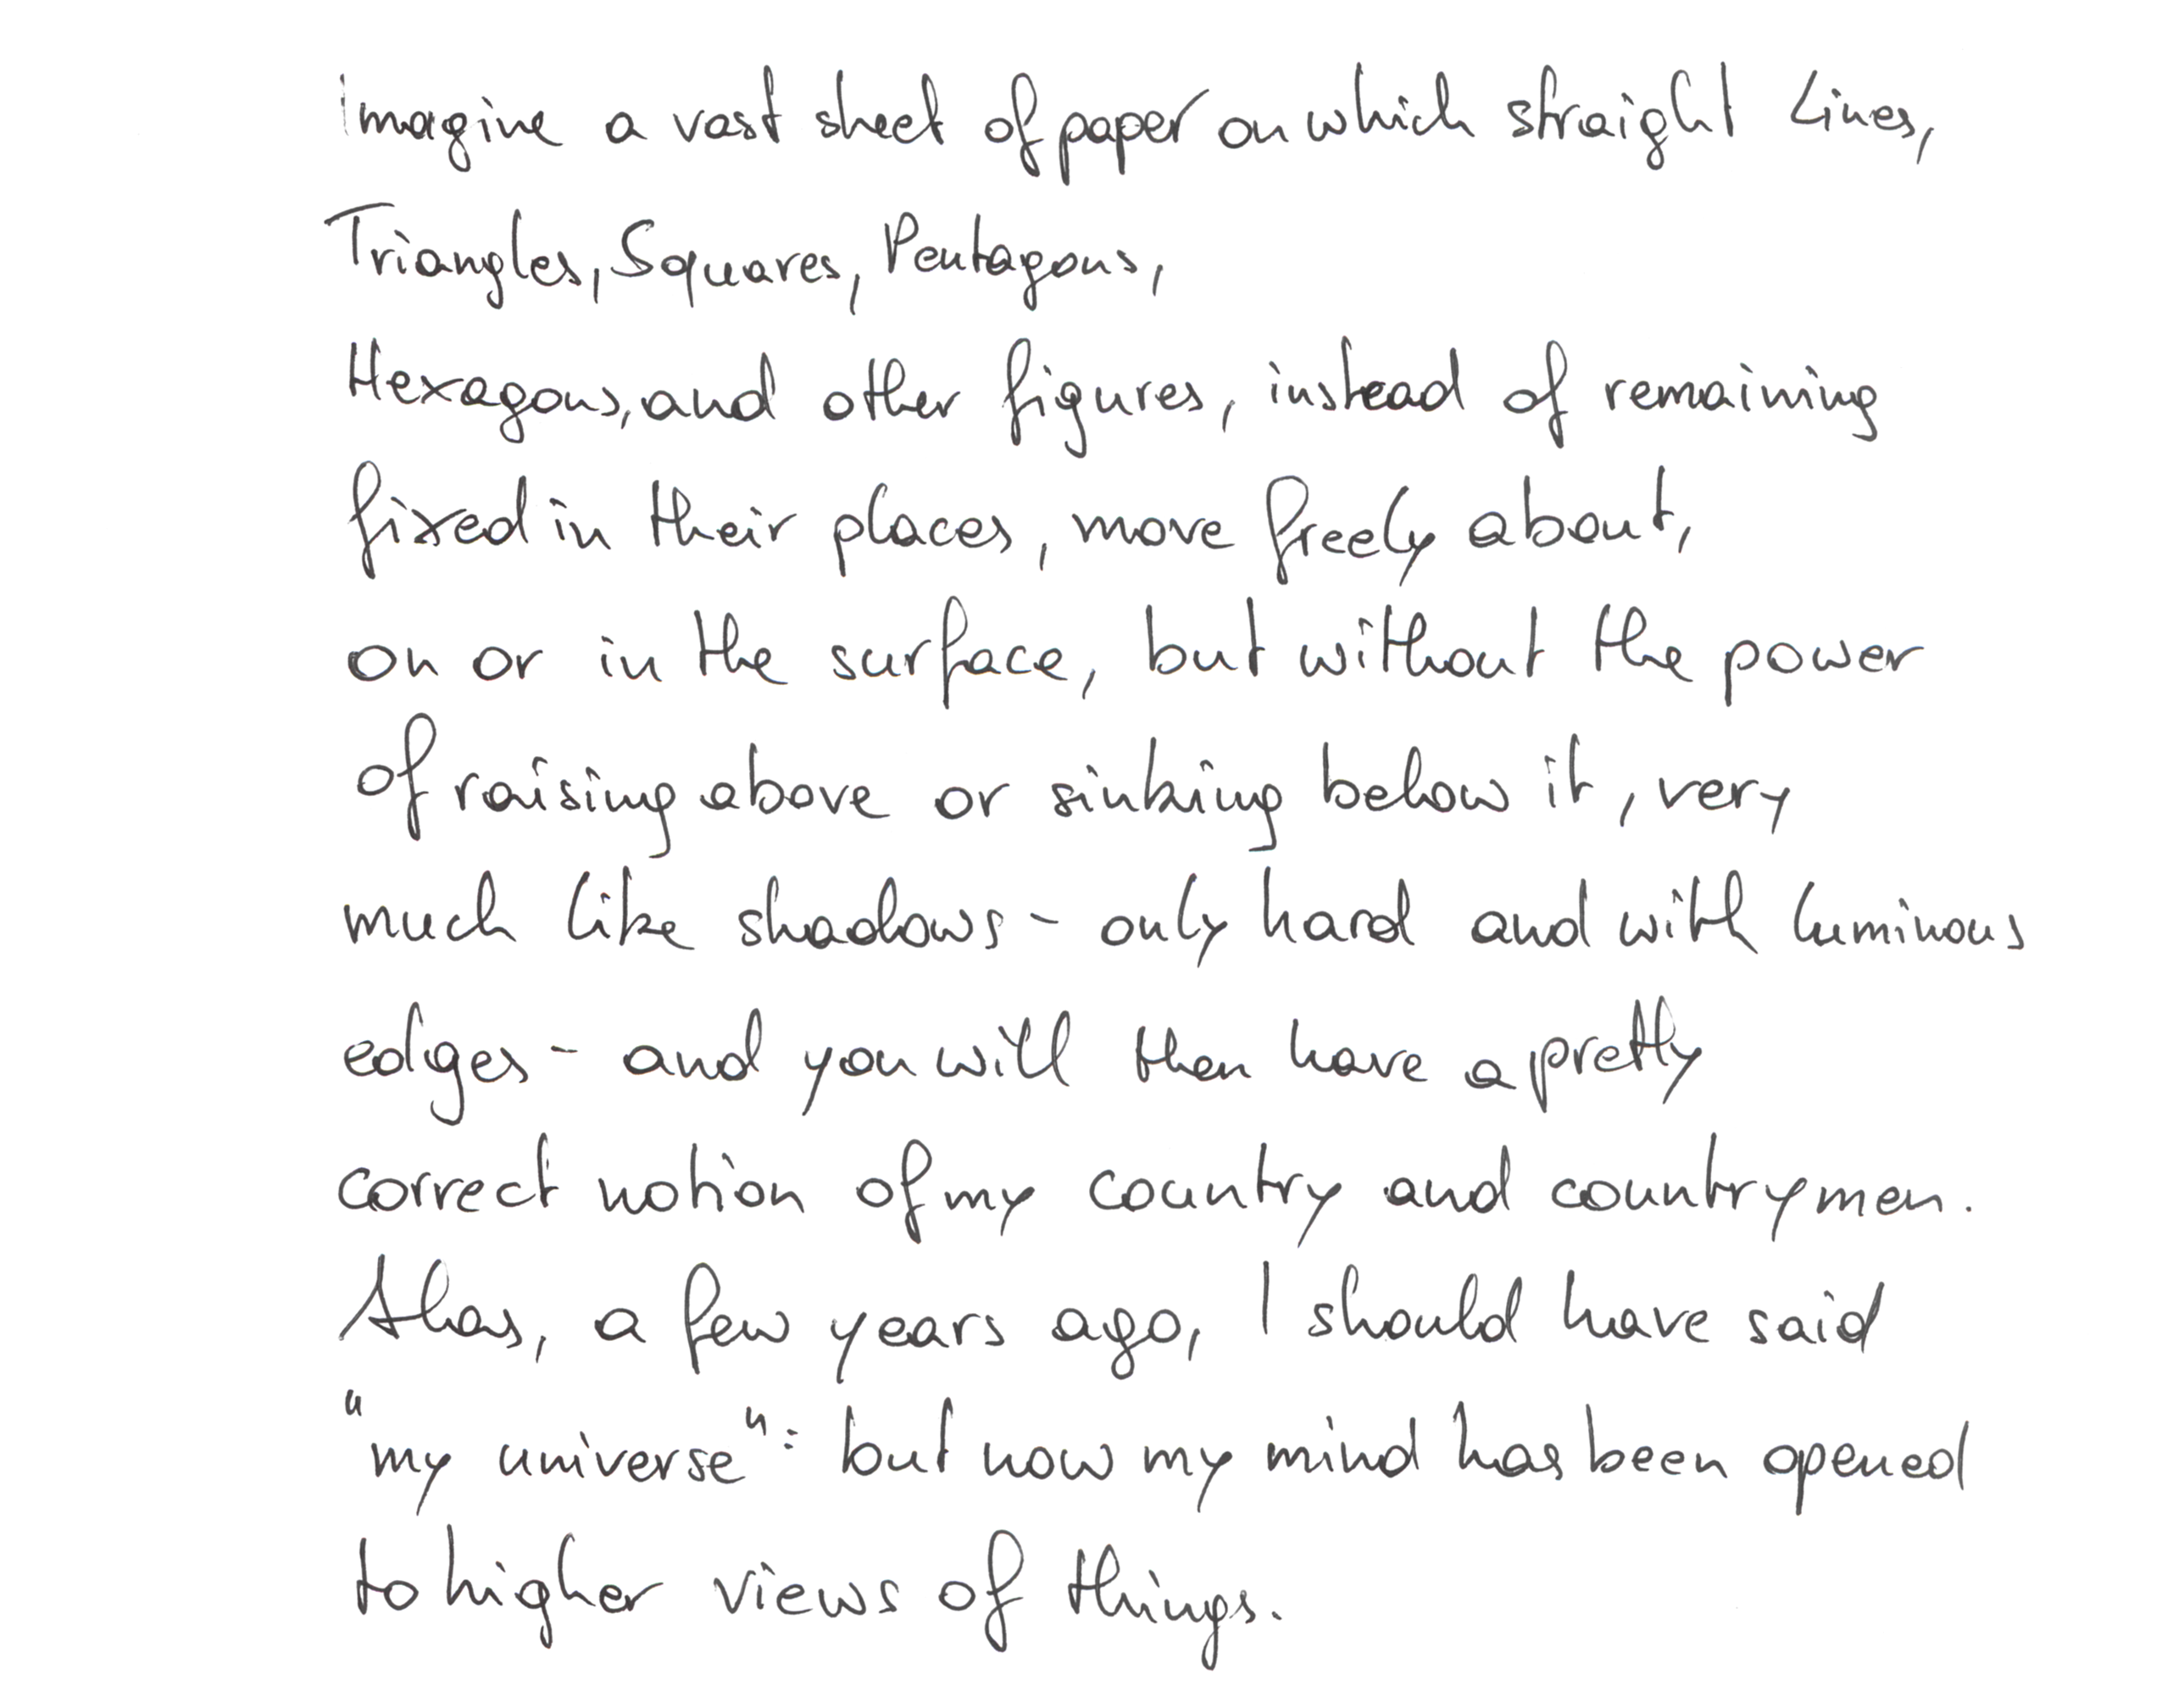 Imagine a vast sheet of paper on which straight Lines,
Triangles, Squares, Pentagons,
Hexagons, and other figures, instead of remaining
fixed in their places, move freely about,
on or in the surface, but without the power
of raising above or sinking below it, very
much like shadows - only hard and with luminous
edges - and you will then have a pretty
correct notion of my country and countrymen.
Alas, a few years ago, I should have said
"my universe": but now my mind has been opened
to higher views of things.